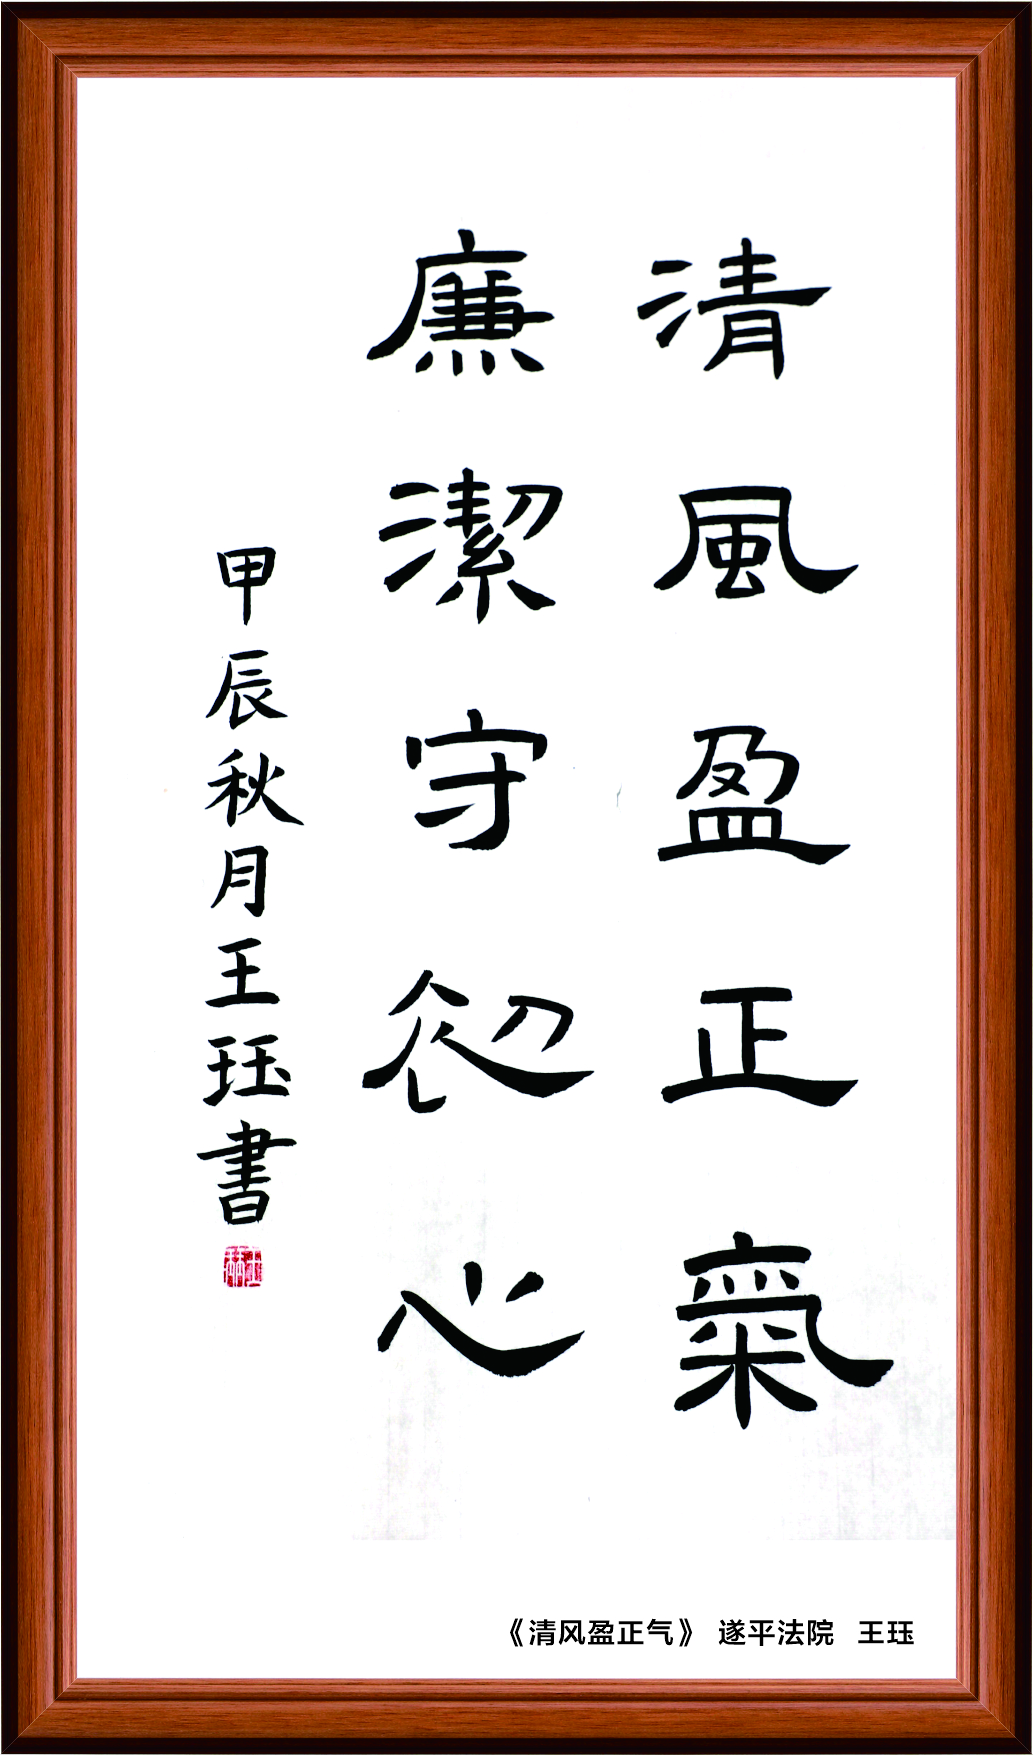 清風盈正氣
廉潔守初心
甲辰秋月王珏書
《清风盈正气》 遂平法院 王珏